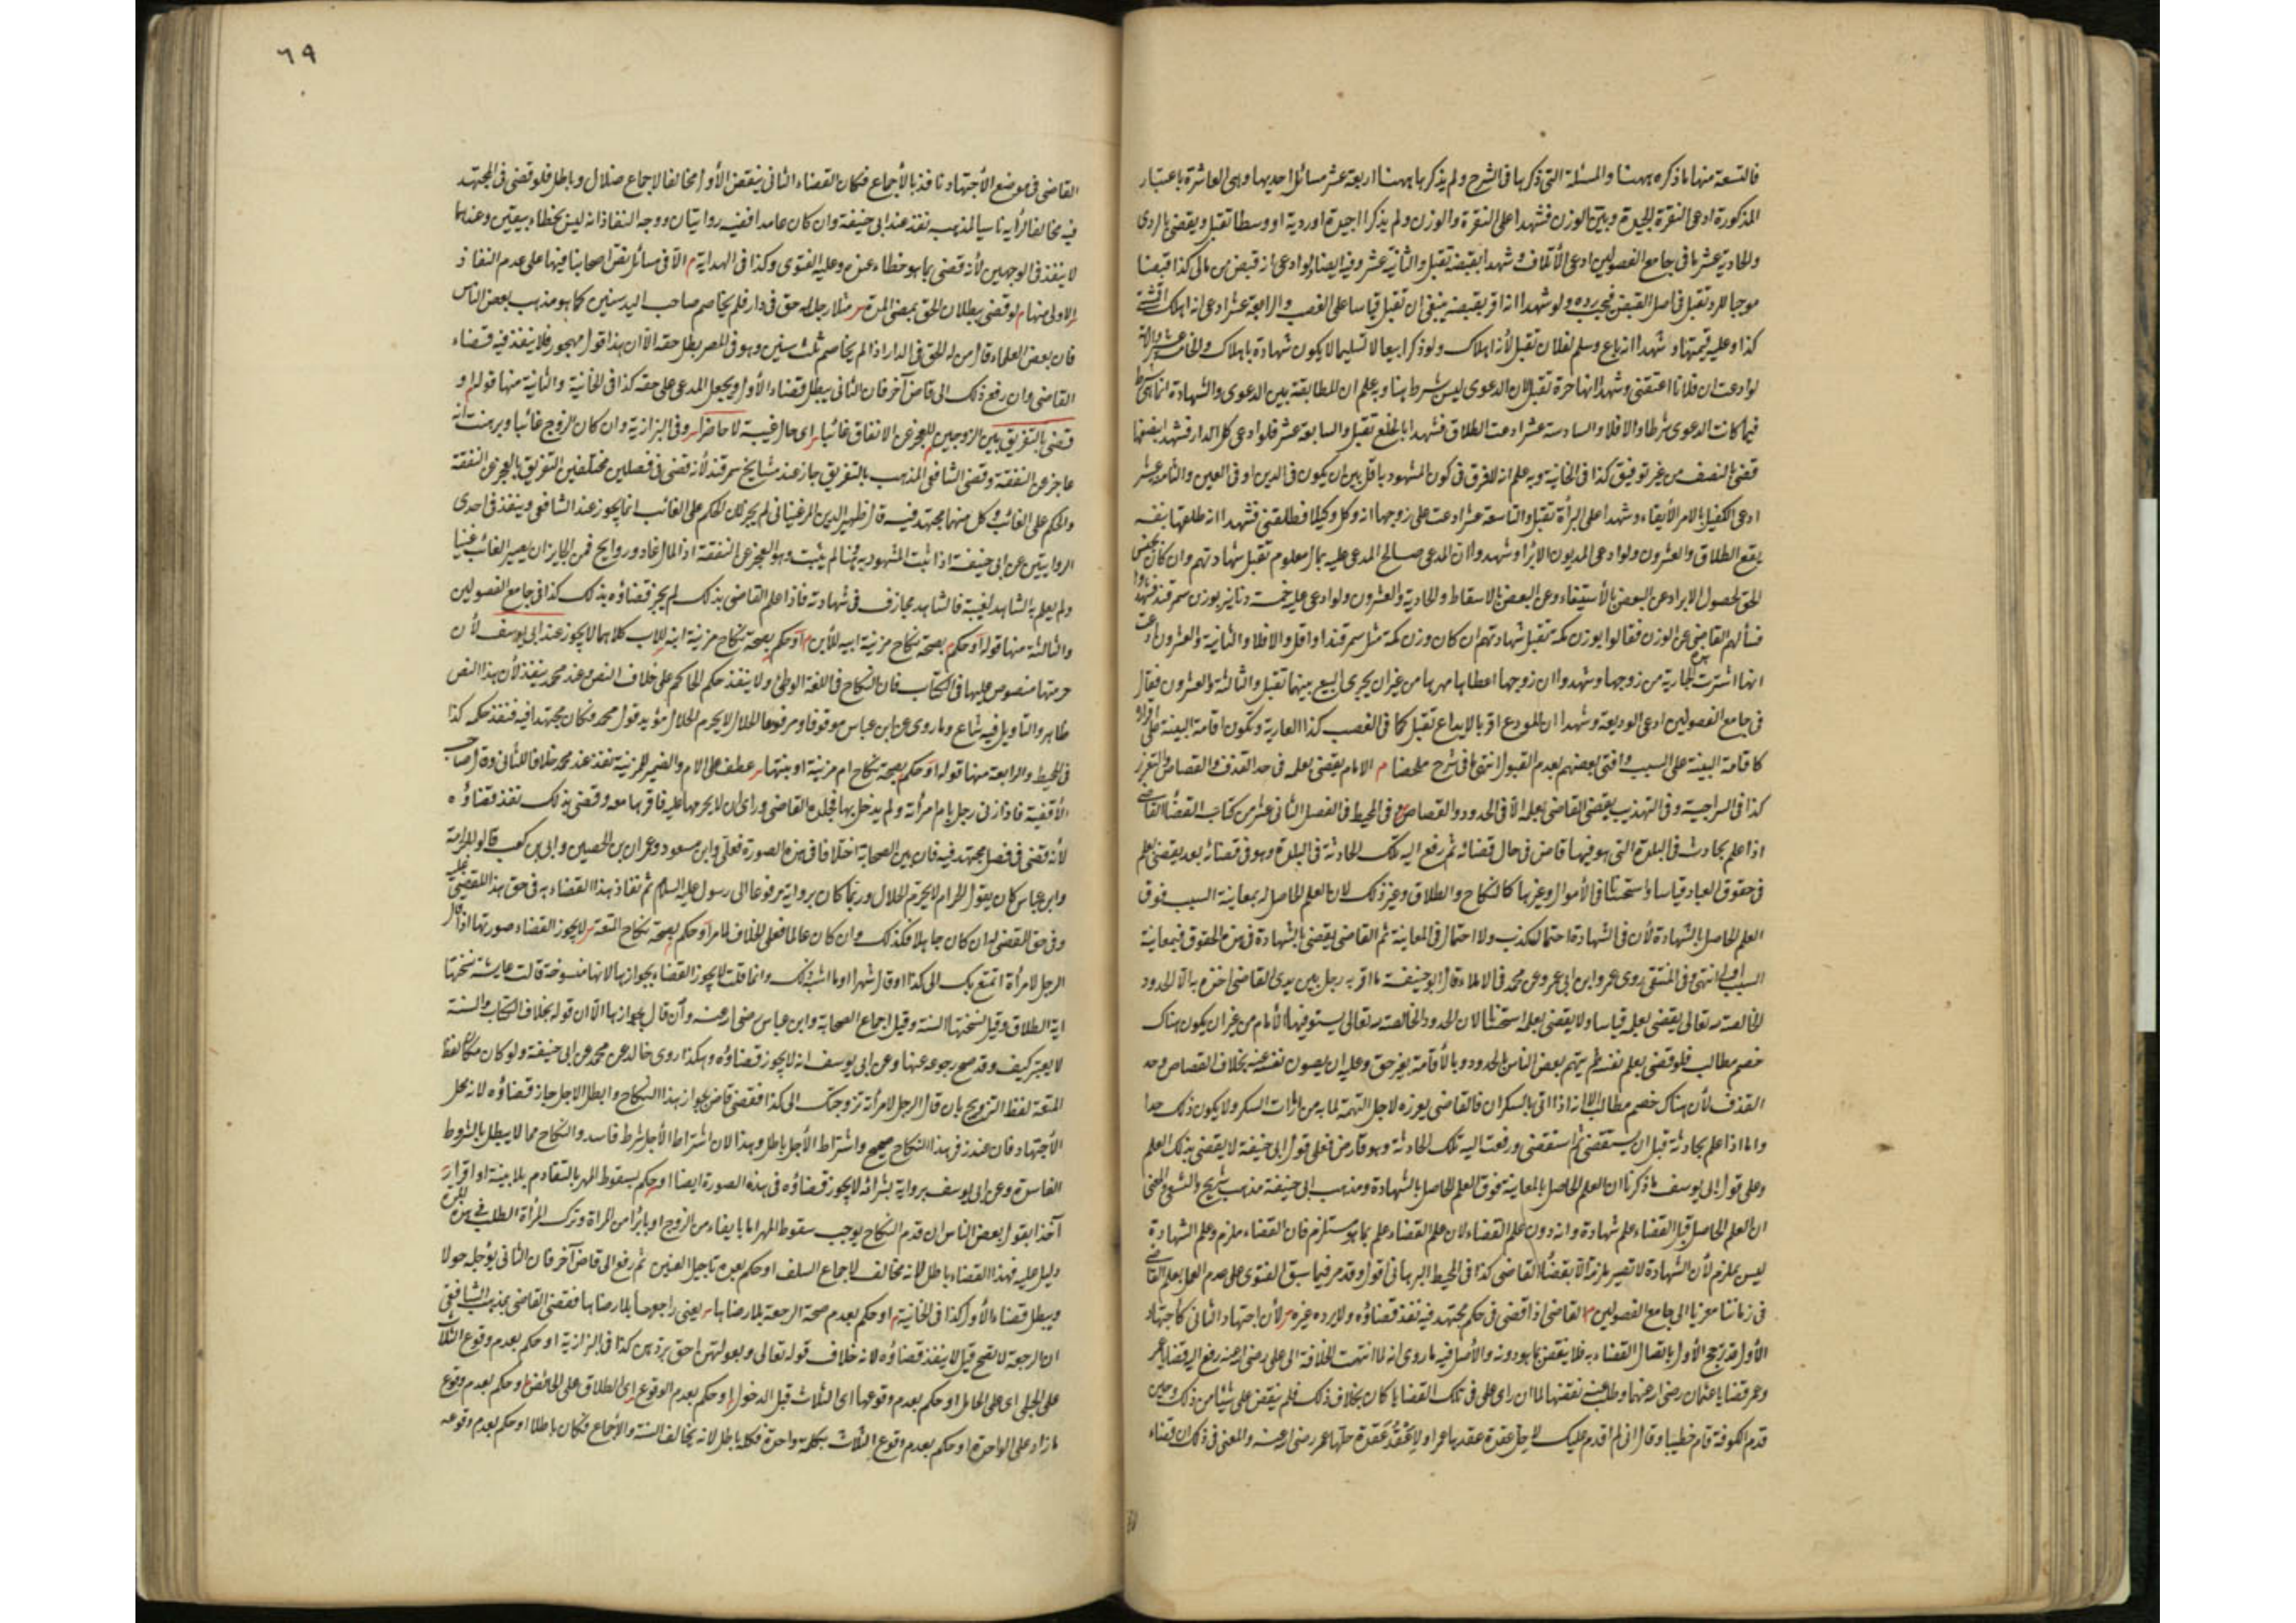 فالتسعة منها ما ذكره ههنا والمسئلة التي ذكرها في الشرح ولم يذكرها ههنا اربعة عشر مسائل احديها وهي العاشرة باعتبار
المذكورة ادعى النقرة الجيدة وبين الوزن فشهدا على النقرة والوزن ولم يذكرا جيدة او ردية او وسطا تقبل ويقضى بالردى
والحادية عشر ما في جامع الفصولين ادعى الاتلاف وشهدا بقبضه تقبل والثانية عشر وفيه ايضا لو ادعى انه قبض من مالى كذا قبضا
موجبا للرد تقبل في اصل القبض فيجب رده ولو شهدا انه اقر بقبضه ينبغى ان تقبل قياسا على الغصب والرابعة عشر ادعى انه اهلك اقمشة
كذا وعليه قيمتها وشهدا انه باع وسلم لفلان تقبل لأنه اهلاك ولو ذكرا بيعا لا تسليما لا يكون شهادة باهلاك والخامسة عشر
لو ادعت ان فلانا اعتقنى وشهدا انها حرة تقبل لان الدعوى ليس شرط هنا وبه علم ان المطابقة بين الدعوى والشهادة انما هى شرط
فيما كانت الدعوى شرطا والا فلا والسادسة عشر ادعت الطلاق فشهدا بالخلع تقبل والسابعة عشر فلو ادعى كل الدار فشهدا بنصفها
قضى بالنصف من غير توفيق كذا في الخانية وبه علم انه لا فرق في كون المشهود باقل بين ان يكون في الدين او في العين والثامنة عشر
ادعى الكفيل بالامر الأيفاء وشهدا على البرأة تقبل والتاسعة عشر ادعت على زوجها انه وكل وكيلا فطلقنى فشهدا انه طلقها بنفسه
يقع الطلاق والعشرون ولو ادعى المديون الابراء وشهدوا ان المدعى صالح المدعى عليه بمال معلوم تقبل شهادتهم وان كان بجنس
الحق لحصول الابراء عن البعض بالأستيفاء وعن البعض بالاسقاط والحادية والعشرون ولو ادعى عليه خمسة دنانير بوزن سمرقند فشهدوا
فسألهم القاضى عن الوزن فقالوا بوزن مكة تقبل شهادتهم ان كان وزن مكة مثل سمرقند او اقل والا فلا والثانية والعشرون ادعت
انها اشترت هذه الجارية من زوجها وشهدوا ان زوجها اعطاها مهرها من غير ان يجرى البيع بينهما تقبل والثالثة والعشرون فيقال
في جامع الفصولين ادعى الوديعة وشهدا ان المودع اقر بالايداع تقبل كما في الغصب كذا العارية وتكون اقامة البينة على اقراره
كاقامة البينة على السبب وافتى بعضهم بعدم القبول انتهى ما في شرح ملخصا م الامام يقضى بعلمه في حد القذف والقصاص والتعزير
كذا في السراجية وفي التهذيب يقضى القاضى بعلمه الا في الحدود والقصاص وفي المحيط في الفصل الثانى عشر من كتاب القضاء القاضى
اذا علم بحادث في البلدة التى هو فيها قاض في حال قضائه ثم رفع اليه تلك الحادثة في البلدة وهو في قضائه بعد يقضى بعلمه
في حقوق العباد قياسا واستحسانا في الأموال وغيرها كالنكاح والطلاق وغير ذلك لان العلم الحاصل بمعاينة السبب فوق
العلم الحاصل بالشهادة لأن في الشهادة احتمال كذب ولا احتمال في المعاينة ثم القاضى يقضى بالشهادة في هذه الحقوق فبمعاينة
السبب اولى انتهى وفي المنتقى روى عمرو ابن ابى عمرو عن محمد في الاملاء قال ابو حنيفة ما اقر به رجل بين يدى القاضى اخذه به الا الحدود
الخالصة لله تعالى يقضى بعلمه قياسا ولا يقضى بعلمه استحسانا لان الحدود الخالصة لله تعالى يستوفيها الأمام من غير ان يكون هناك
خصم مطالب فلو قضى بعلم نفسه لم يتهمه بعض الناس الحدود بالأقامة بغير حق وعليه ان يصون نفسه بخلاف القصاص وحد
القذف لأن هناك خصم مطالب الا انه اذا اتى بالسكران فالقاضى يعزره لاجل التهمة لما به من اثرات السكر ولا يكون ذلك حدا
واما اذا علم بحادثة قبل ان يستقضى ثم استقضى ورفعت اليه تلك الحادثة وهو قاض فعلى قول ابى حنيفة لا يقضى بذلك العلم
وعلى قول ابى يوسف ما ذكرنا ان العلم الحاصل بالمعاينة فوق العلم الحاصل بالشهادة ومذهب ابى حنيفة مذهب شريح والشعبى والمعنى
ان العلم الحاصل قبل القضاء علم شهادة وانه دون علم القضاء لان علم القضاء علم بما هو مستلزم فان القضاء ملزم وعلم الشهادة
ليس بملزم لأن الشهادة لا تصير ملزمة الا بقضاء القاضى كذا في المحيط البرهانى اقول وقد مر فيما سبق الفتوى على عدم العمل بعلم القاضى
في زماننا معزيا الى جامع الفصولين م القاضى اذا قضى في حكم مجتهد فيه نفذ قضاؤه ولا يرده غيره لأن اجتهاد الثانى كاجتهاد
الأول قد ترجح الأول باتصال القضاء به فلا ينقض بما هو دونه والأصل فيه ما روى انه لما انتهت الخلافة الى على رضى الله عنه رفع اليه قضايا عمر
وعمر قضايا عثمان رضى الله عنهما وطلب منه نقضها لما ان رأى على في تلك القضايا كان بخلاف ذلك فلم ينقض على شيئا من ذلك وحين
قدم الكوفة قام خطيبا وقال انى لم اقدم عليكم لاحل عقدة عقدها عمر او لاعقد عقدة حلها عمر رضى الله عنه والمعنى في ذلك ان قضاء
٦٩
القاضى في موضع الأجتهاد نافذ بالأجماع فكان القضاء الثانى بنقض الأول مخالفا للاجماع ضلال وباطل فلو قضى في المجتهد
فيه مخالفا لرأيه ناسيا لمذهبه نفذ عند ابى حنيفة وان كان عامدا ففيه روايتان ووجه النفاذ انه ليس بخطاء بيقين وعندهما
لا ينفذ في الوجهين لأنه قضى بما هو خطاء عنده وعليه الفتوى وكذا في الهداية م الا في مسائل نص اصحابنا فيها على عدم النفاذ
الاولى منها م لو قضى ببطلان الحق بمضى المدة مثلا رجل له حق في دار فلم يخاصم صاحب اليد سنين كما هو مذهب بعض الناس
فان بعض العلماء قال من له الحق في الدار اذا لم يخاصم ثلث سنين وهو في المصر بطل حقه الا ان هذا قول مهجور فلا ينفذ فيه قضاء
القاضى وان رفع ذلك الى قاض آخر فان الثانى يبطل قضاء الأول ويجعل المدعى على حقه كذا في الخانية والثانية منها قوله او
قضى بالتفريق بين الزوجين للعجز عن الانفاق غائبا اى حال غيبته لا حاضرا وفي البزازية وان كان الزوج غائبا وبرهنت انه
عاجز عن النفقة وقضى الشافعى المذهب بالتفريق جاز عند مشايخ سمرقند لأنه قضى في فصلين مختلفين التفريق بالعجز عن النفقة
والحكم على الغائب وكل منهما مجتهد فيه قال ظهير الدين المرغينانى لم يجز لان الحكم على الغائب انما يجوز عند الشافعى وينفذ في احدى
الروايتين عن ابى حنيفة اذا ثبت المشهود به وهنا لم يثبت وهو العجز عن النفقة اذ المال غاد ورايح فمن الجايز ان يصير الغائب غنيا
ولم يعلم به الشاهد لغيبته فالشاهد مجازف في شهادته فاذا علم القاضى بذلك لم يجز قضاؤه بذلك كذا في جامع الفصولين
والثالثة منها قوله او حكم بصحة نكاح مزنية ابيه للأبن م او حكم بصحة نكاح مزنية ابنه للاب كلاهما لا يجوز عند ابى يوسف لأن
حرمتها منصوص عليها في الكتاب فان النكاح في اللغة الوطئ ولا ينفذ حكم الحاكم على خلاف النص وعند محمد ينفذ لأن هذا النص
ظاهر والتاويل فيه شاع وما روى عن ابن عباس موقوفا ومرفوعا الحلال لا يحرم الحلال مؤيد قول محمد فكان مجتهدا فيه فنفذ حكمه كذا
في المحيط والرابعة منها قوله او حكم بصحة نكاح ام مزنية او بنتها عطف على الام والضمير للمزنية نفذ عند محمد خلافا للثانى وقال صاحب
الأقضية فاذا زنى رجل بام امرأته ولم يدخل بها فجلده القاضى ورأى ان لا يحرمها عليه فاقرها معه وقضى بذلك نفذ قضاؤه
لأنه قضى في فصل مجتهد فيه فان بين الصحابة اختلافا في هذه الصورة فعلى وابن مسعود وعمران بن الحصين وابى بن كعب قالوا بالحرمة
وابن عباس كان يقول الحرام لا يحرم الحلال وربما كان يرويه مرفوعا الى رسول عليه السلام ثم نفاذ هذا القضاء به في حق هذا المقضى عليه
وفي حق المقضى له ان كان جاهلا فكذلك وان كان عالما فعلى الخلاف لما مر او حكم بصحة نكاح المتعة لا يجوز القضاء صورتها اذا قال
الرجل لامرأة اتمتع بك الى كذا او قال شهرا او ما اشبه ذلك وانما قلت لا يجوز القضاء بجوازها لانها منسوخة قالت عايشة نسختها
اية الطلاق وقيل نسختها السنة وقيل اجماع الصحابة وابن عباس رضى الله عنه وآن قال بجوازها الا ان قوله بخلاف الكتاب والسنة
لا يعتبر كيف وقد صح رجوعه عنها وعن ابى يوسف انه لا يجوز قضاؤه وهكذا روى خالد عن محمد عن ابى حنيفة ولو كان مكان لفظ
المتعة لفظ التزويج بان قال الرجل لامرأته تزوجتك الى كذا فقضى قاض بجواز هذا النكاح وابطل الاجل جاز قضاؤه لانه محل
الأجتهاد فان عند زفر هذا النكاح صحيح واشتراط الأجل باطل وهذا لان اشتراط الأجل شرط فاسد والنكاح مما لا يبطل بالشروط
الفاسدة وعن ابى يوسف برواية بشر انه لا يجوز قضاؤه في هذه الصورة ايضا او حكم بسقوط المهر بالتقادم بلا بينة او اقرار
آخذا بقول بعض الناس ان قدم النكاح يوجب سقوط المهر اما بايفاء من الزوج او بابراء من المراة وترك المرأة الطلب في هذه المدة
دليل عليه فهذا القضاء باطل لانه مخالف لاجماع السلف او حكم بعدم تاجيل العنين ثم رفع الى قاض آخر فان الثانى يؤجله حولا
ويبطل قضاء الأول كذا في الخانية م او حكم بعدم صحة الرجعة بلا رضاها يعنى راجعها بلا رضاها فقضى القاضى بمذهب الشافعى
ان الرجعة لا تصح قيل لا ينفذ قضاؤه لانه خلاف قوله تعالى وبعولتهن احق بردهن كذا في البزازية او حكم بعدم وقوع الثلاث
على الحبلى اى على الحامل او حكم بعدم وقوعها اى الثلاث قبل الدخول او حكم بعدم الوقوع اى الطلاق على الحائض او حكم بعدم وقوع
ما زاد على الواحدة او حكم بعدم وقوع الثلاث بكلمة واحدة فكله باطل لانه يخالف السنة والأجماع فكان باطلا او حكم بعدم وقوعه